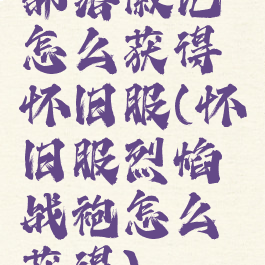 部落徽记
怎么获得
怀旧服(怀
旧服烈焰
战袍怎么
获得)